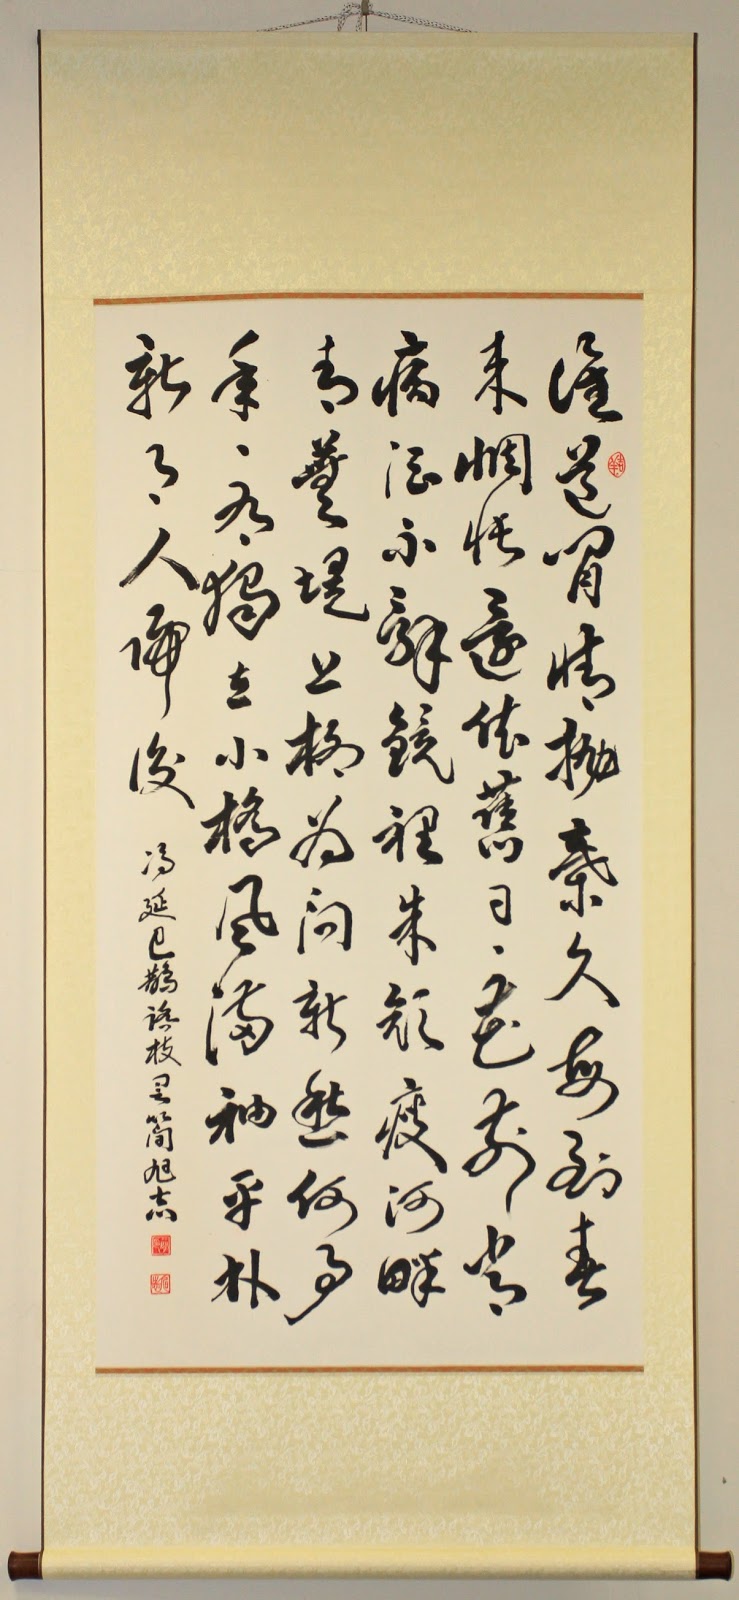 誰道閒情拋棄久每到春
來惆悵還依舊日、花前常
病酒不辭鏡裡朱顏瘦河畔
青蕪堤上柳為問新愁何事
年、有獨立小橋風滿袖平林
新月人歸後
馮延巳鵲踏枝 簡旭志